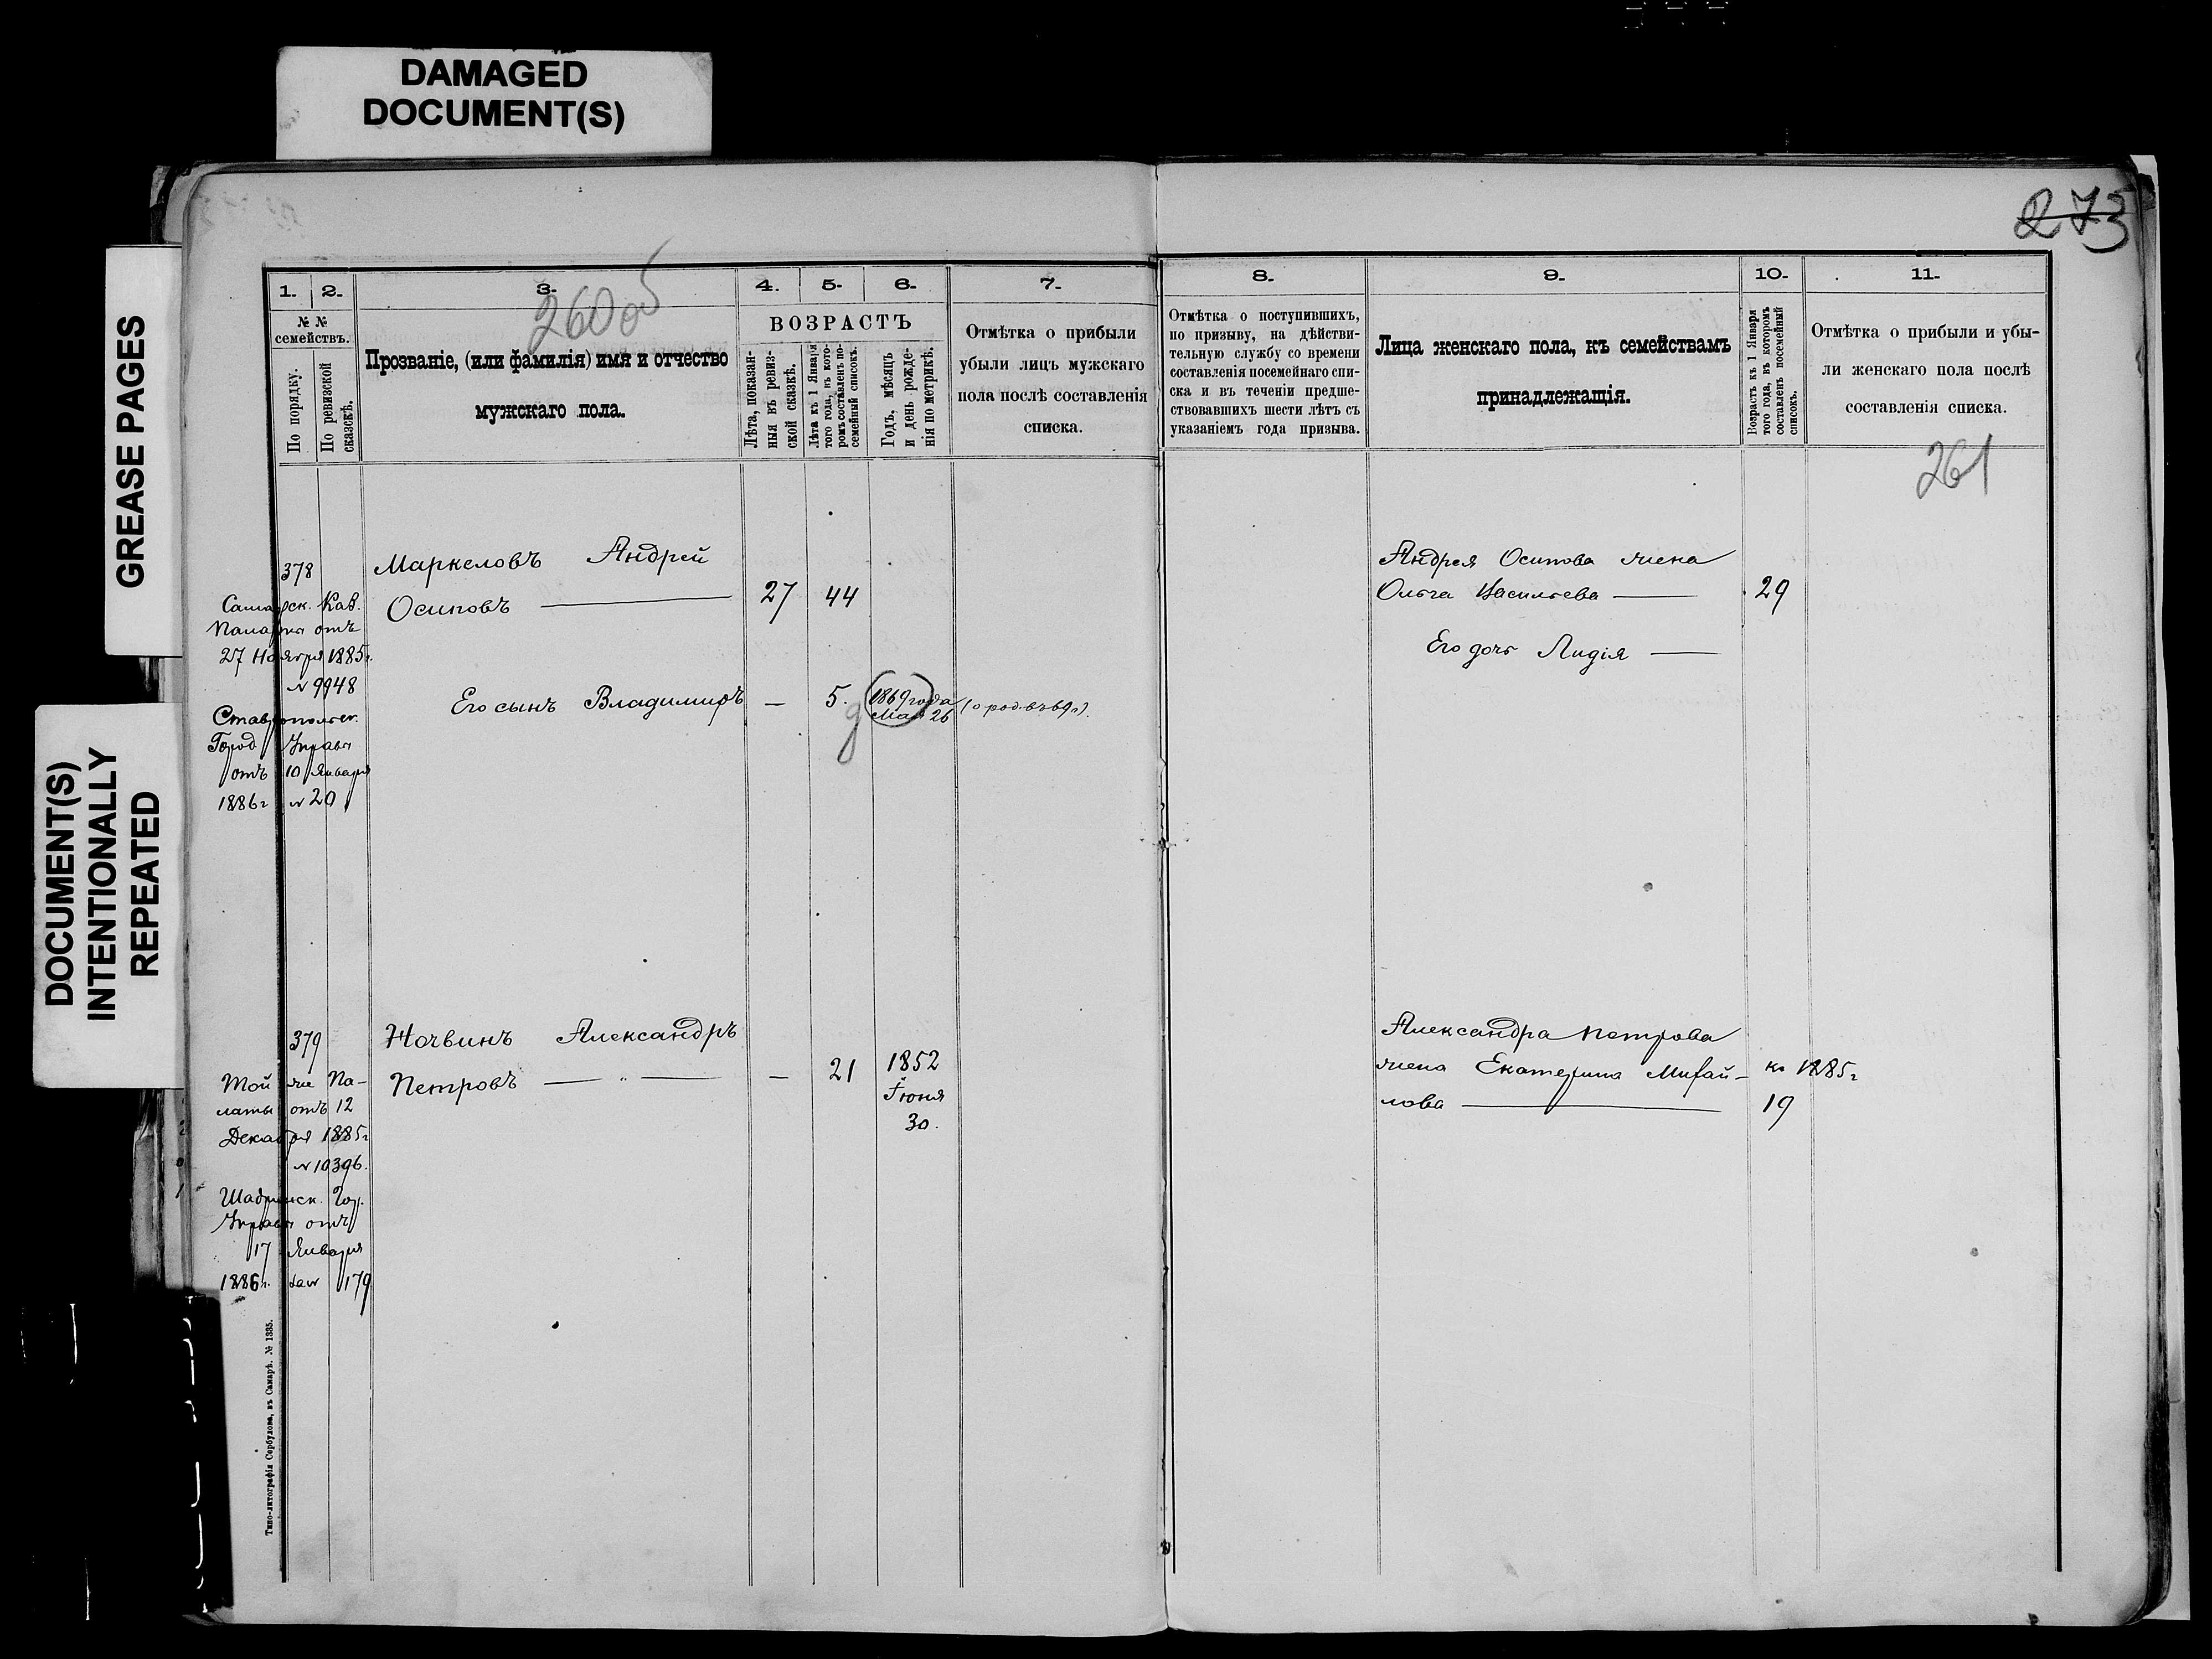 DAMAGED
DOCUMENT(S)
GREASE PAGES
DOCUMENT(S)
INTENTIONALLY
REPEATED
273
260 об
1.
2.
3.
4.
5.
6.
7.
№ №
семействъ.
По порядку.
По ревизской
сказкѣ.
Прозваніе, (или фамилія) имя и отчество
мужскаго пола.
ВОЗРАСТЪ
Лѣта, показан-
ныя въ ревиз-
ской сказкѣ.
Лѣта къ 1 Января
того года, въ кото-
ромъ составленъ по-
семейный списокъ.
Годъ, мѣсяцъ
и день рожде-
нія по метрикѣ.
Отмѣтка о прибыли
убыли лицъ мужскаго
пола послѣ составленія
списка.
378
Маркеловъ Андрей
Осиповъ
27
44
Самарск. Каз.
Палаты отъ
27 Ноября 1885г.
№ 9948
Ставропольск.
Город Управы
отъ 10 Января
1886г № 20
Его сынъ Владимиръ
—
5.
1869 года
Мая 26
(о род. въ 69 г).
379
Ночвинъ Александръ
Петровъ — „ —
—
21
1852
Іюня
30.
Той же Па-
латы отъ 12
Декабря 1885г
№ 10396.
Шадринск. Гор.
Управы отъ
17 Января
1886г. за № 179
Типо-литографія Сербулова, въ Самарѣ. № 1335.
8.
9.
10.
11.
Отмѣтка о поступившихъ,
по призыву, на дѣйстви-
тельную службу со времени
составленія посемейнаго спи-
ска и въ теченіи предше-
ствовавшихъ шести лѣтъ съ
указаніемъ года призыва.
Лица женскаго пола, къ семействамъ
принадлежащія.
Возрастъ къ 1 Января
того года, въ которомъ
составленъ посемейный
списокъ.
Отмѣтка о прибыли и убы-
ли женскаго пола послѣ
составленія списка.
261
Андрея Осипова жена
Ольга Васильева —
29
Его дочь Лидія —
Александра Петрова
жена Екатерина Михай-
лова —
къ 1885г
19